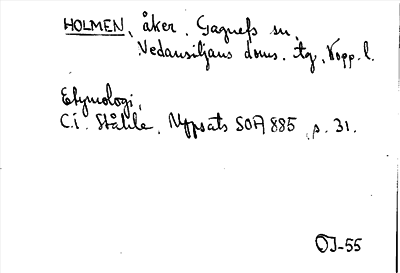 HOLMEN, åker. Gagnefs sn,
Nedansiljans doms. tg, Kopp. l.
Etymologi,
C.I. Ståhle, Uppsats SOA 885, p. 31.
OJ-55